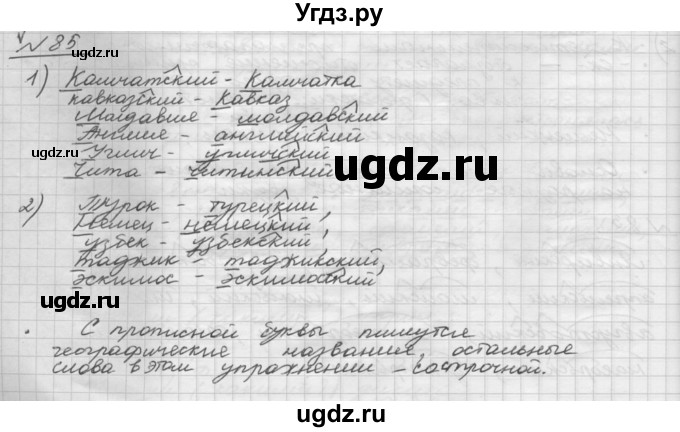 Угдз.ру
№ 85
1) Камчатский - Камчатка
кавказский - Кавказ
Молдавия - молдавский
Англия - английский
Углич - угличский
Чита - читинский
2) Турок - турецкий,
Немец - немецкий,
узбек - узбекский,
таджик - таджикский,
эскимос - эскимосский
С прописной буквы пишутся
географические названия, остальные
слова в этом упражнении - со строчной.
ugdz.ru
ugdz.ru
ugdz.ru
ugdz.ru
ugdz.ru
ugdz.ru
ugdz.ru